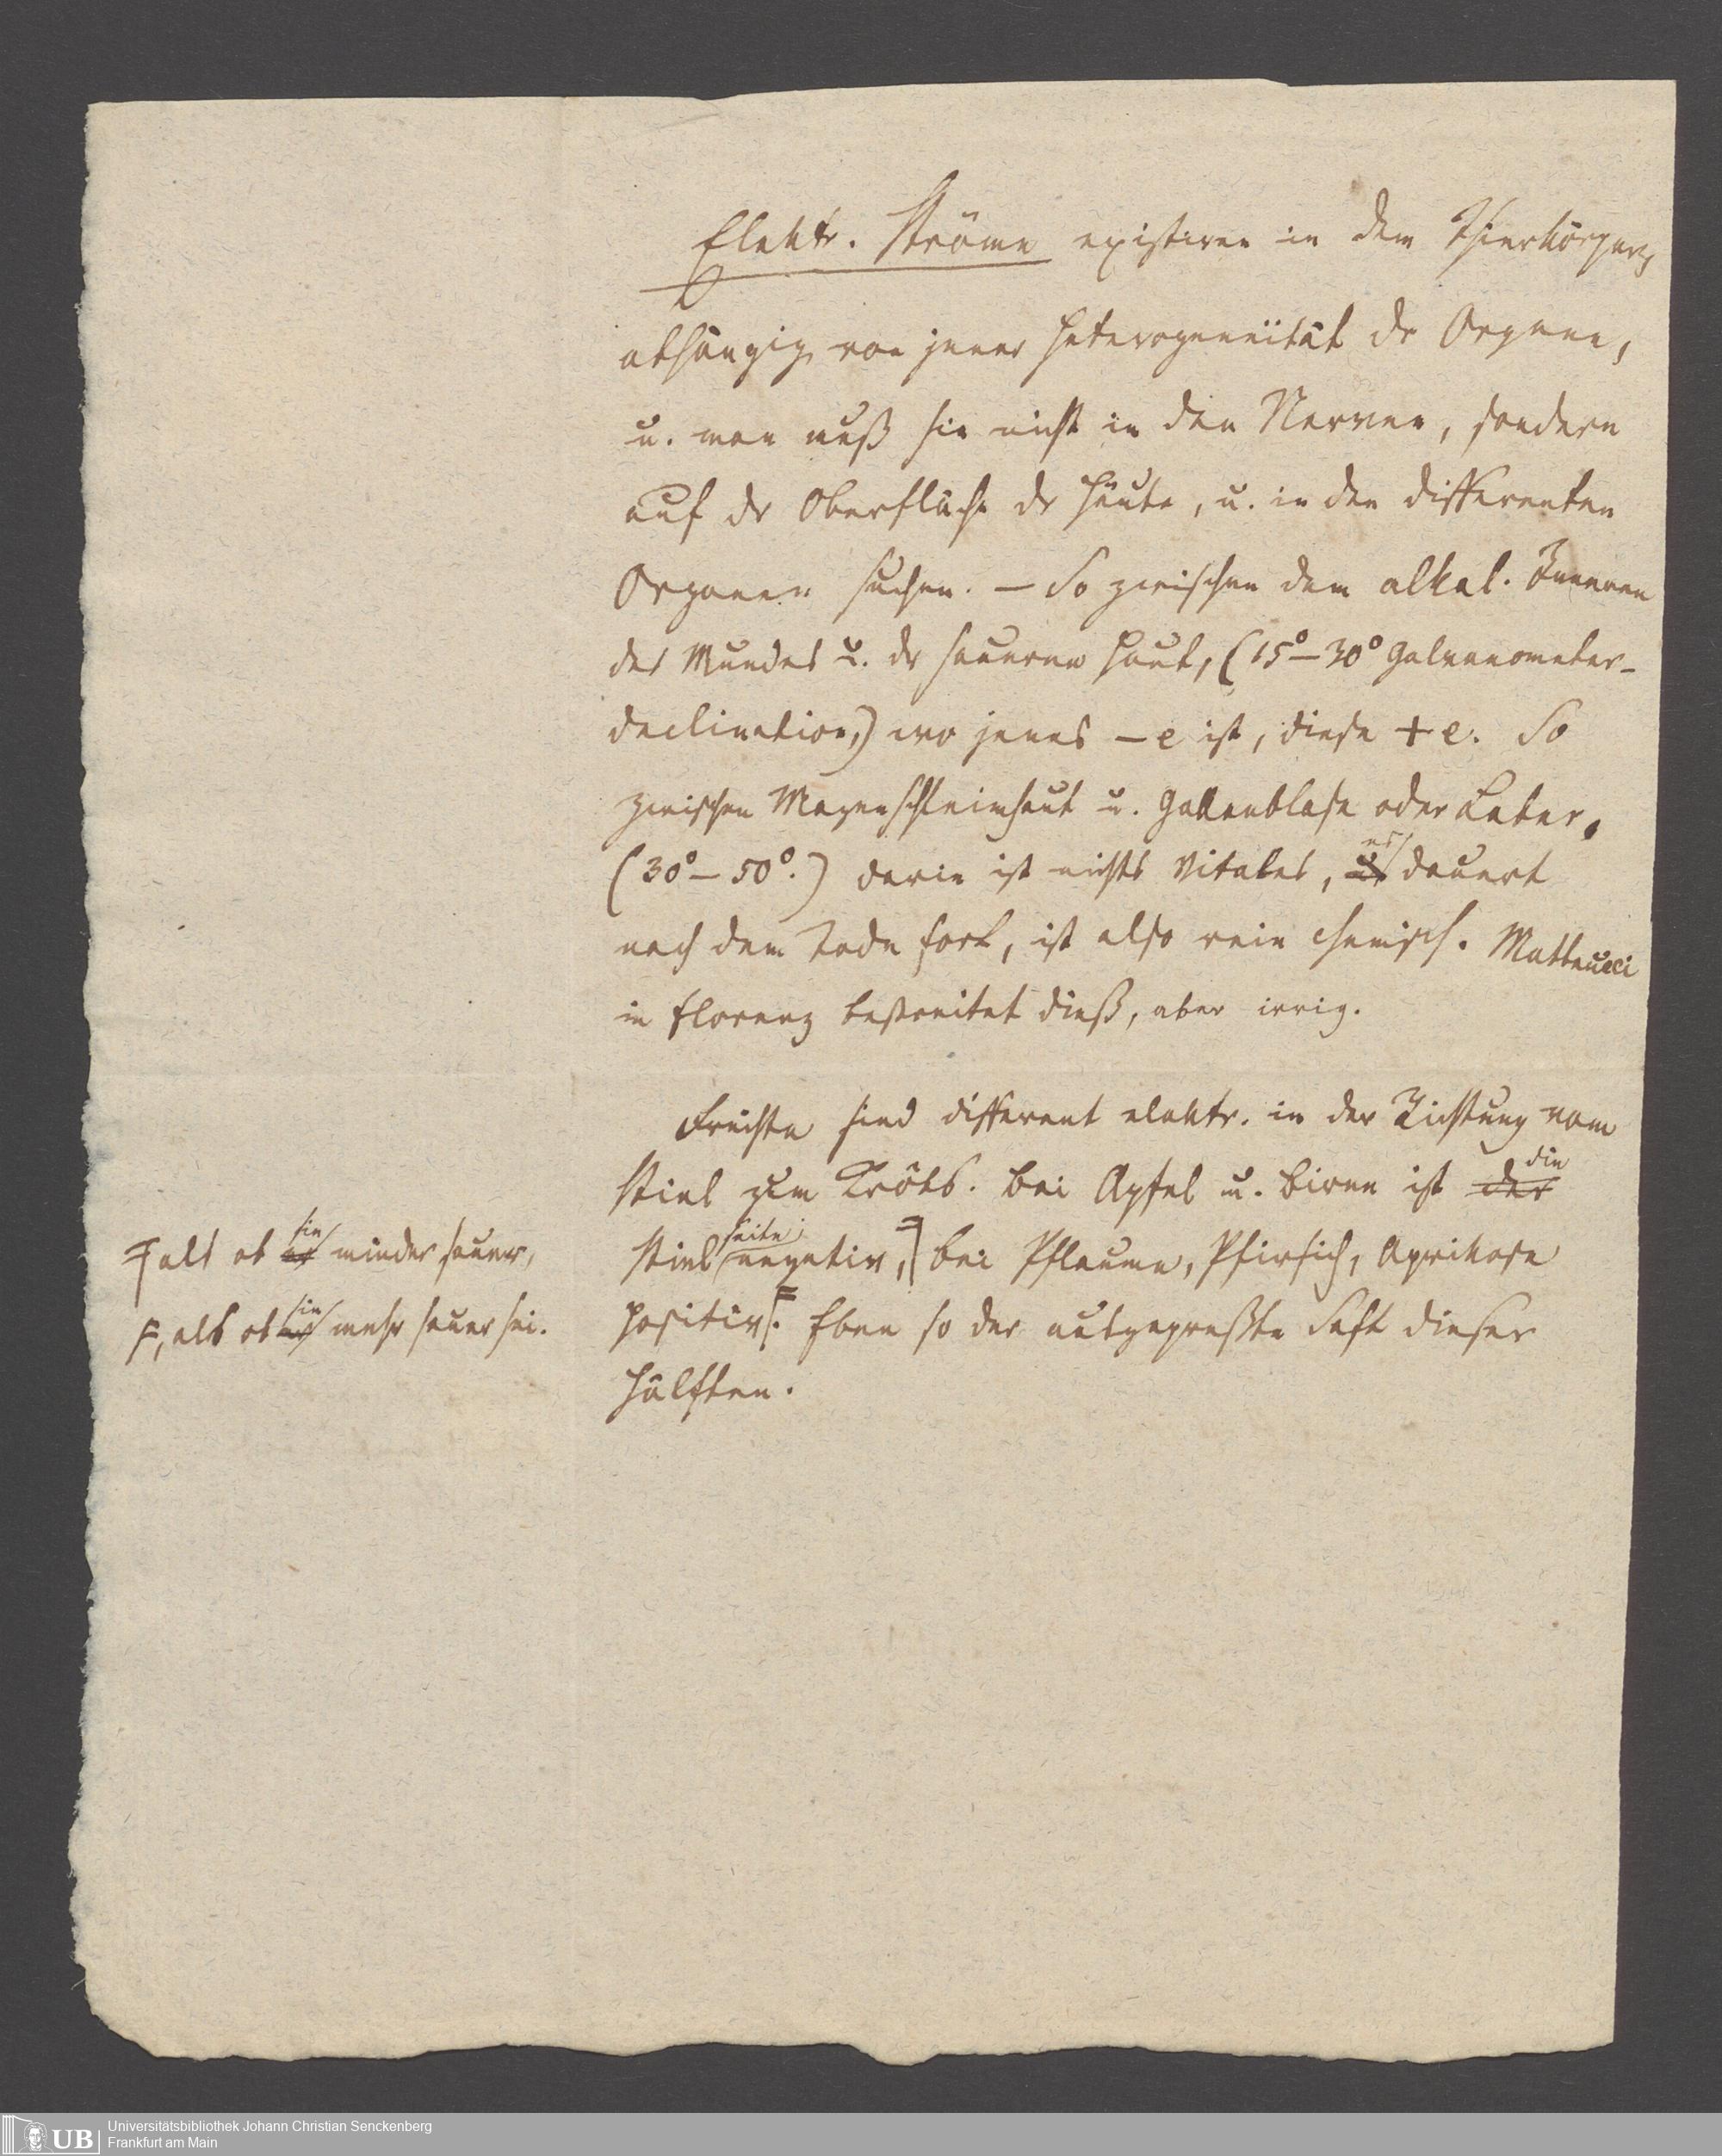 Elektr. Ströme existiren in dem Thierkörper,
abhängig von jener Heterogeneität dr Organe,
u. man muß sie nicht in den Nerven, sondern
auf dr Oberfläche dr Häute, u. in den differenten
Organen suchen. – So zwischen dem alkal. Inneren
des Mundes u. dr saueren Haut, (15° – 30° Galvanometer-
declination,) wo jenes – e ist, diese + e. So
zwischen Magenschleimhaut u. Gallenblase oder Leber,
(30° – 50°.) darin ist nichts Vitales, u. es dauert
nach dem Tode fort, ist also rein chemisch. Matteucci
in Florenz bestreitet dieß, aber irrig.
Früchte sind different elektr. in der Richtung vom
Stiel zum Kröbs. Bei Apfel u. Birne ist der die
Stielseite negativ, bei Pflaume, Pfirsich, Aprikose
positiv. Eben so der ausgepreßte Saft dieser
Hälften.
als ob er sie minder sauer,
, als ob er sie mehr sauer sei.
Universitätsbibliothek Johann Christian Senckenberg
Frankfurt am Main
UB